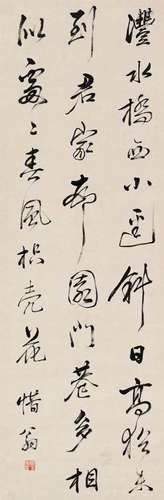 灃水橋西小逕斜日高猶未
到君家邨園門巷多相
似處〻春風枳壳花 惜翁